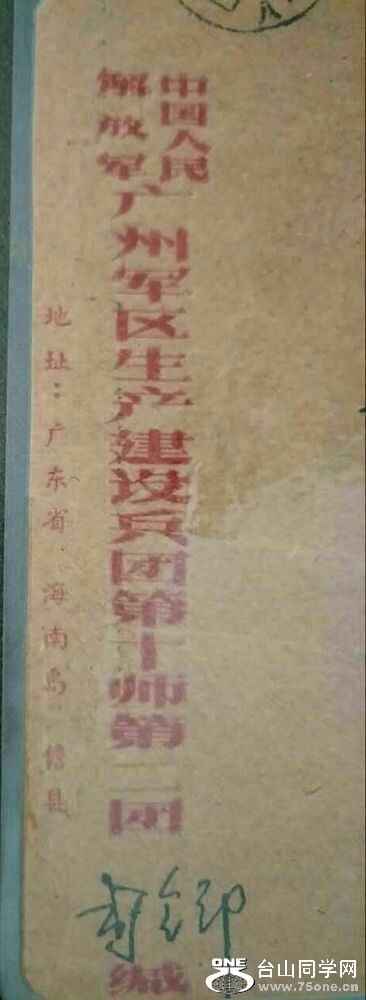 中国人民
解放军
广州军区生产建设兵团第十师第二团
缄
地址：广东省 海南岛 儋县
ONE
台山同学网
www.75one.cn